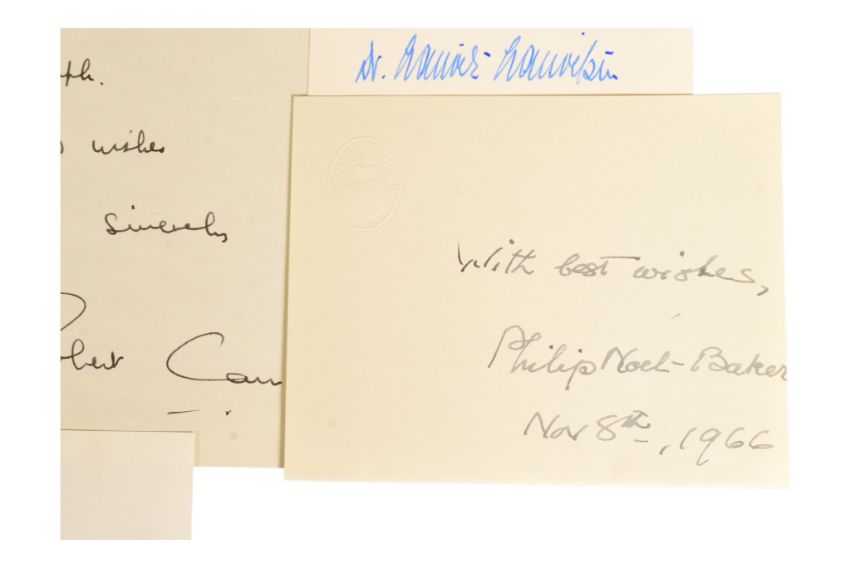 ph.
wishes
sincerely
bert Carr
Dr.
With best wishes,
Philip Noel-Baker
Nov 8th, 1966